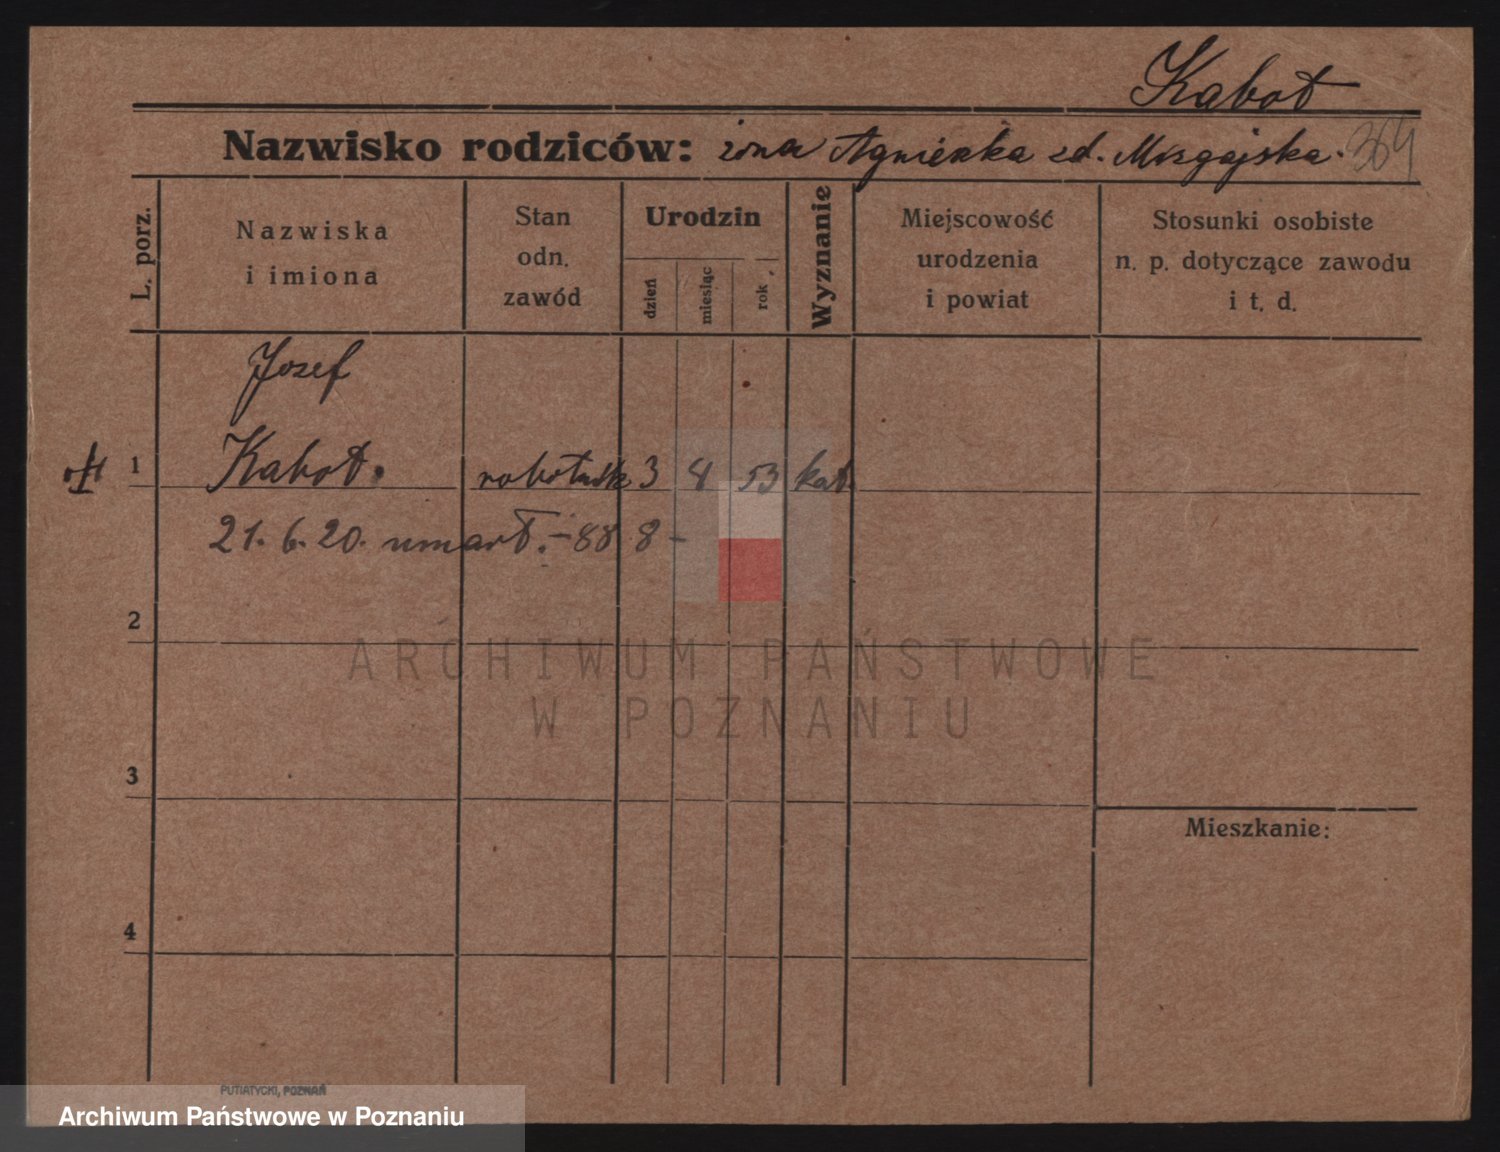 Kabot
Nazwisko rodziców: żona Agnieszka zd. Mizgajska. 364
L. porz.
Nazwiska
i imiona
Stan
odn.
zawód
Urodzin
dzień
miesiąc
rok
Wyznanie
Miejscowość
urodzenia
i powiat
Stosunki osobiste
n. p. dotyczące zawodu
i t. d.
Jozef
1 Kabot. robotnik 3 4 53 kat.
21. 6. 20. umart. - 88 8 -
2
3
4
Mieszkanie:
ARCHIWUM PAŃSTWOWE
W POZNANIU
PUTIATYCKI, POZNAŃ
Archiwum Państwowe w Poznaniu